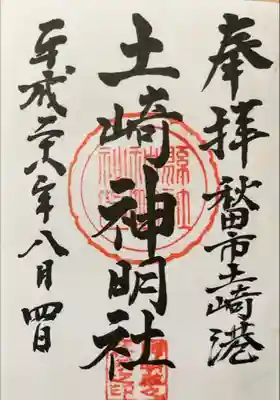 奉拝
秋田市土崎港
土崎神明社
平成二十八年八月四日